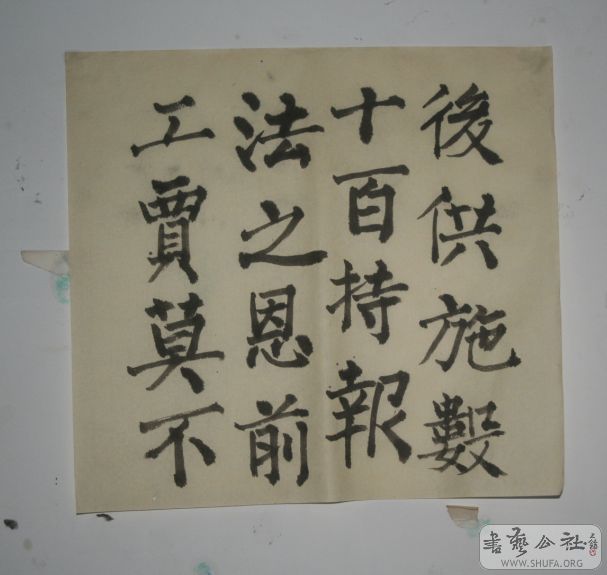 後供施數
十百持報
法之恩前
工賈莫不
書藝公社
WWW.SHUFA.ORG